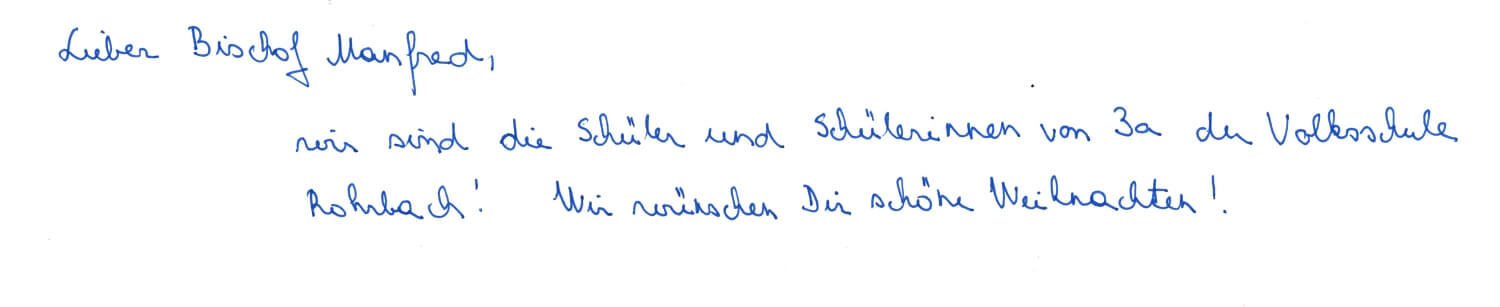 Lieber Bischof Manfred,
wir sind die Schüler und Schülerinnen von 3a der Volksschule
Rohrbach! Wir wünschen Dir schöne Weihnachten!